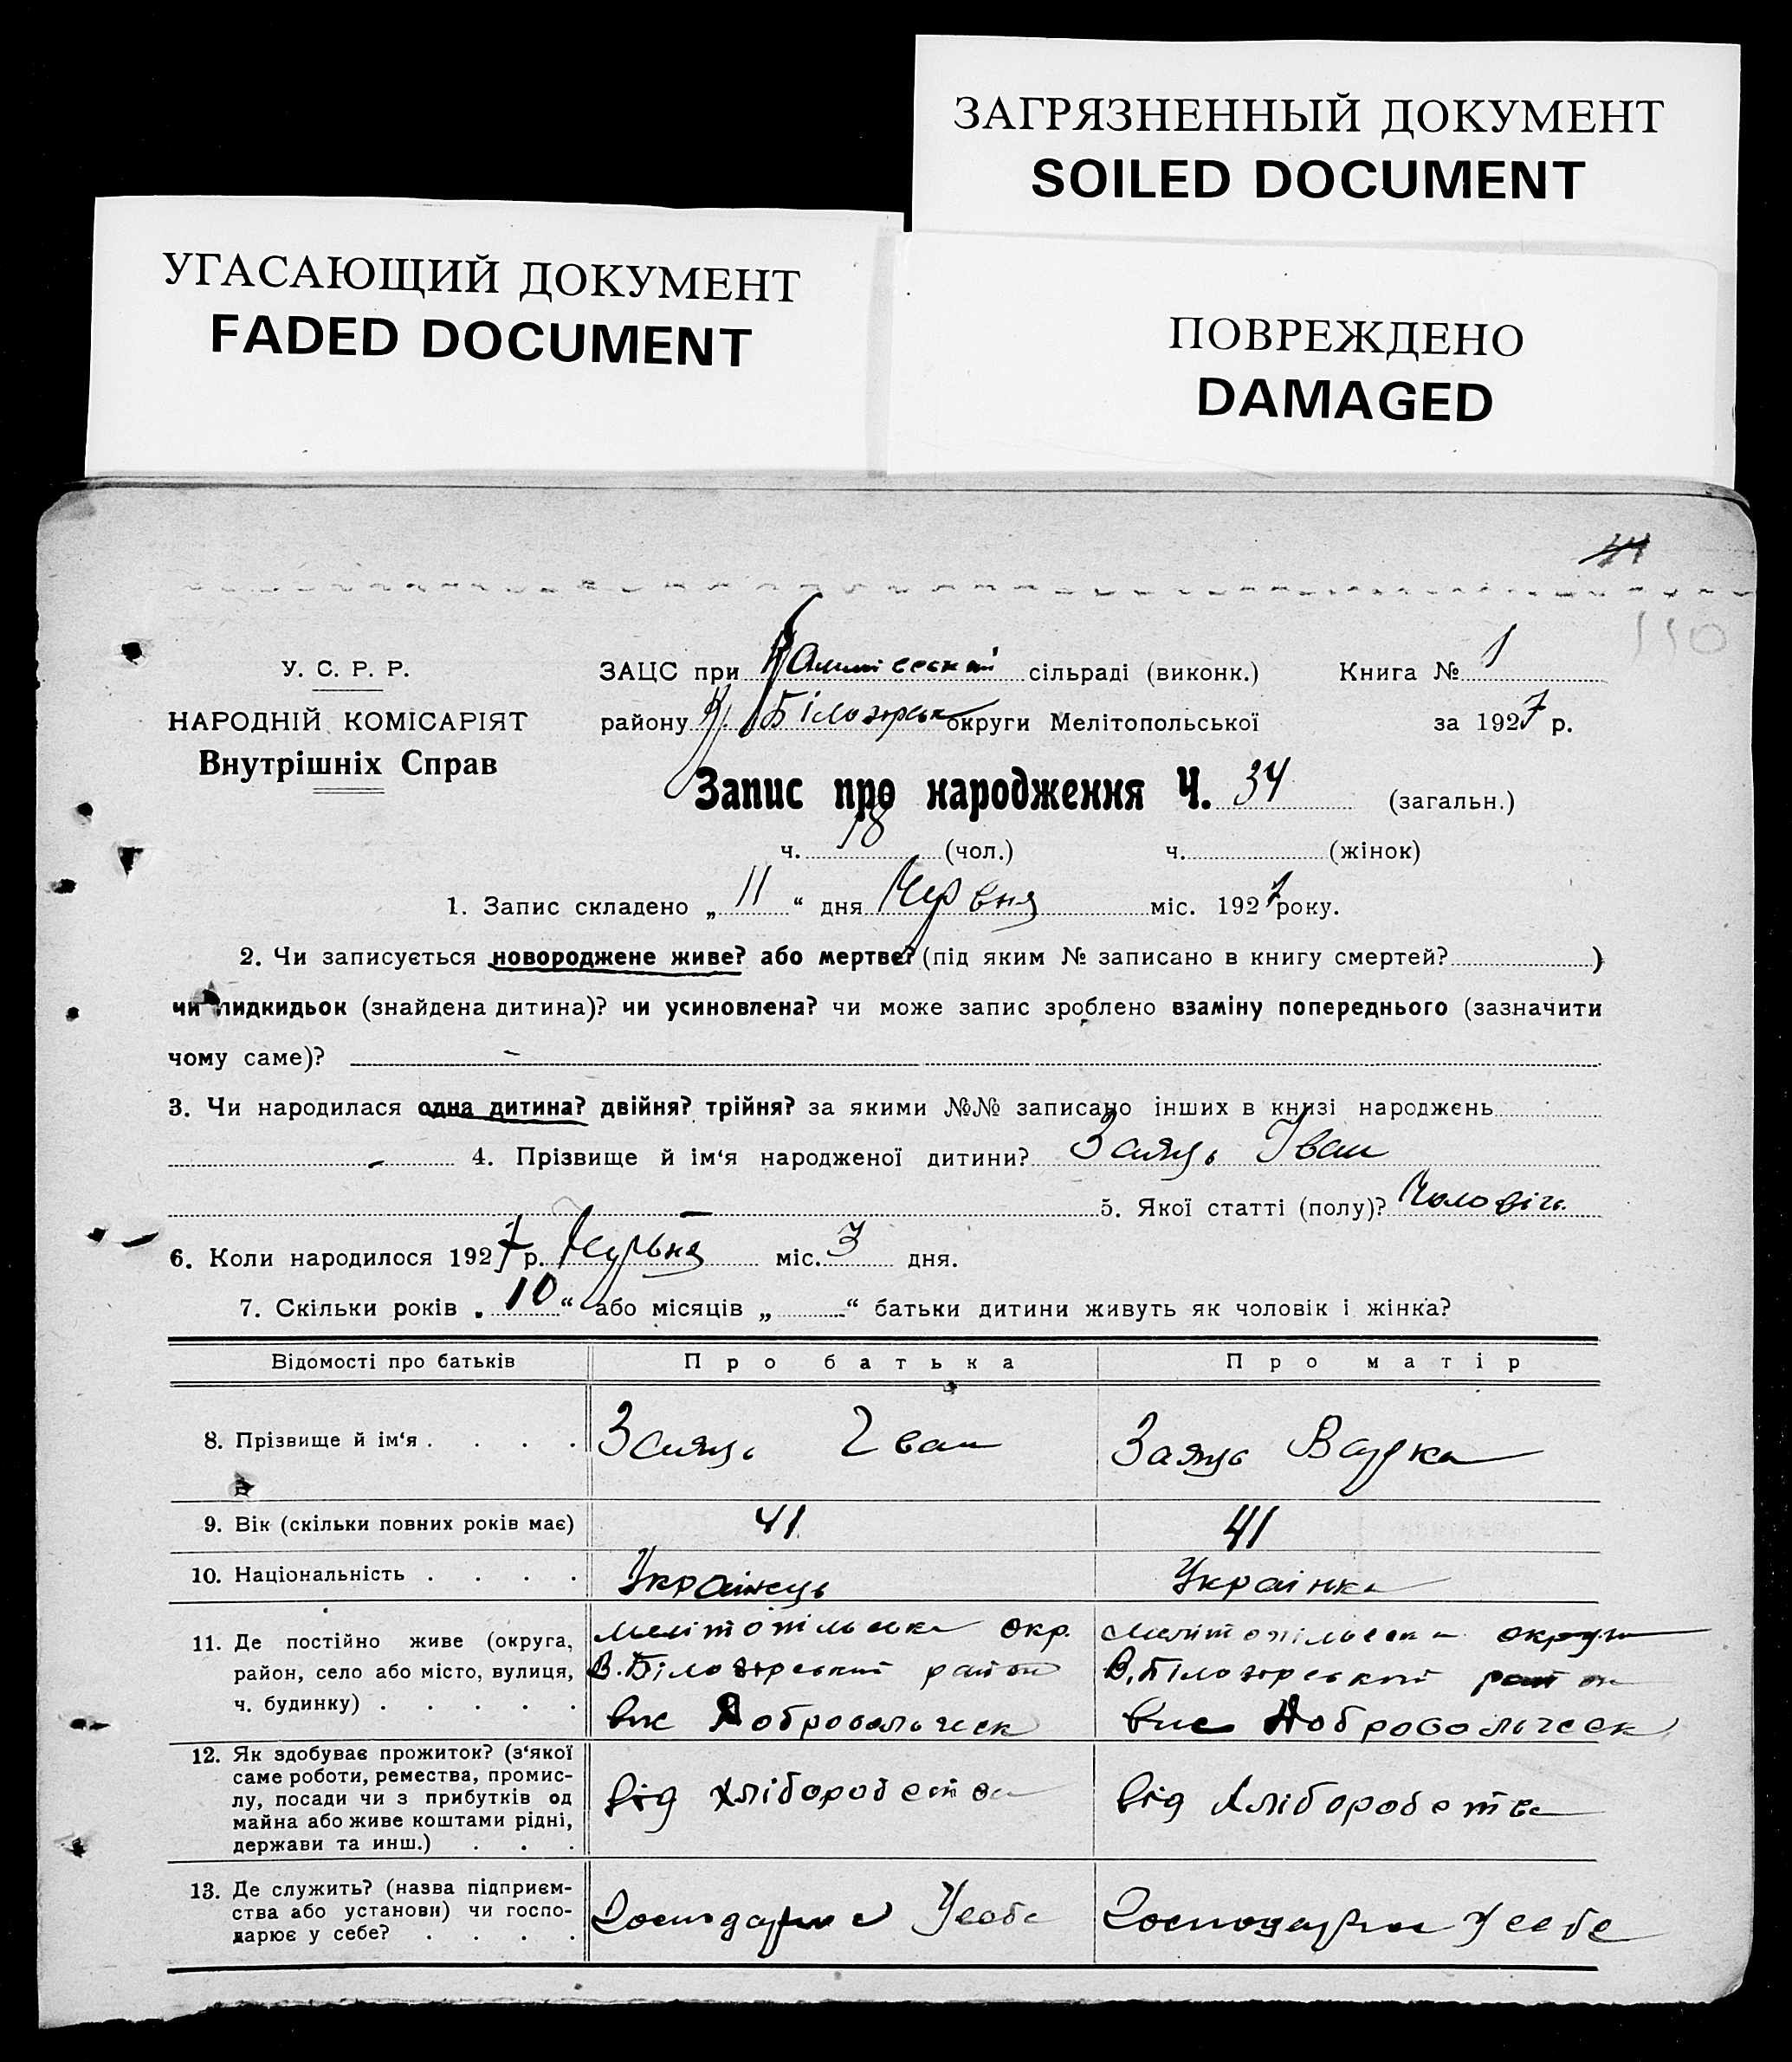 ЗАГРЯЗНЕННЫЙ ДОКУМЕНТ
SOILED DOCUMENT
УГАСАЮЩИЙ ДОКУМЕНТ
FADED DOCUMENT
ПОВРЕЖДЕНО
DAMAGED
110
У. С. Р. Р.
НАРОДНІЙ КОМІСАРІЯТ
Внутрішніх Справ
ЗАЦС при сільраді (виконк.) Книга № 1
району В. Білозірськ округи Мелітопольської за 1927 р.
Запис про народження Ч. 34 (загальн.)
ч. 18 (чол.) ч. (жінок)
1. Запис складено „ 11 “ дня Червня міс. 1927 року.
2. Чи записується новороджене живе? або мертве? (під яким № записано в книгу смертей? )
чи підкидьок (знайдена дитина)? чи усиновлена? чи може запис зроблено взаміну попереднього (зазначити
чому саме)? –
3. Чи народилася одна дитина? двійня? трійня? за якими №№ записано інших в книзі народжень
– 4. Прізвище й ім‘я народженої дитини? Заяць Іван
– 5. Якої статті (полу)? Чоловіч.
6. Коли народилося 1927 р. Червня міс. 3 дня.
7. Скільки років „ 10 “ або місяців „ “ батьки дитини живуть як чоловік і жінка?
Відомості про батьків Про батька Про матір
8. Прізвище й ім‘я . . . . Заяць Іван Заяць
9. Вік (скільки повних років має) 41 41
10. Національність . . . . Українець Українка
11. Де постійно живе (округа,
район, село або місто, вулиця,
ч. будинку) . . . . .
Мелітопільська окр.
В. Білозірський район
вис Добровольческ
Мелітопільська округа
В. Білозірський район
вис Добровольческ
12. Як здобуває прожиток? (з‘якої
саме роботи, ремества, промис-
лу, посади чи з прибутків од
майна або живе коштами рідні,
держави та инш.) . . .
від хліборобства
від хліборобства
13. Де служить? (назва підприєм-
ства або установи) чи госпо-
дарює у себе? . . . .
Господарює Усебе
Господарює Усебе